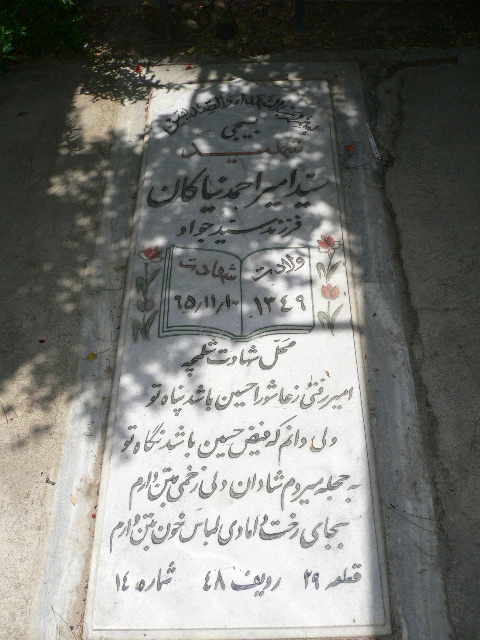 بسیجی
شهید
سید امیر احمد نیاکان
فرزند سید جواد
ولادت شهادت
۱۳۴۹ ۶۵/۱۱/۱۰
محل شهادت شلمچه
امیر رفتی ز عاشورا حسین باشد پناه تو
ولی دانم که فیض حسین باشد نگاه تو
به حجله میروم شادان ولی زخمی بتن دارم
بجای رخت دامادی لباس خون بتن دارم
قطعه ۲۹ ردیف ۴۸ شماره ۱۴